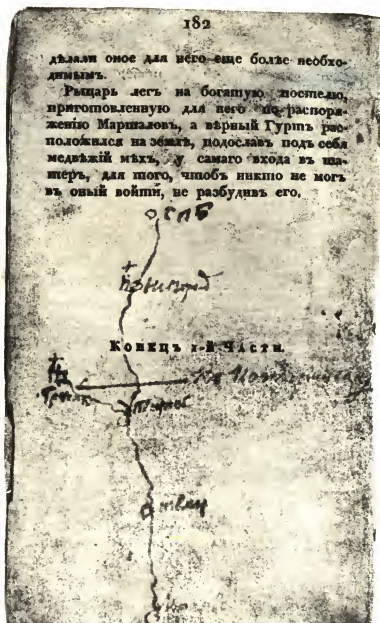 182
дѣлали оное для него еще болѣе необхо-
димымъ.
Рыцарь легъ на богатую постелю,
приготовленную для него по распоря-
женію Маршаловъ, а вѣрный Гуртъ рас-
положился на землѣ, подославъ подъ себя
медвѣжій мѣхъ, у самаго входа въ ша-
теръ, для того, чтобъ никто не могъ
въ оный войти, не разбудивъ его.
СПБ
Конецъ 1-й Части.